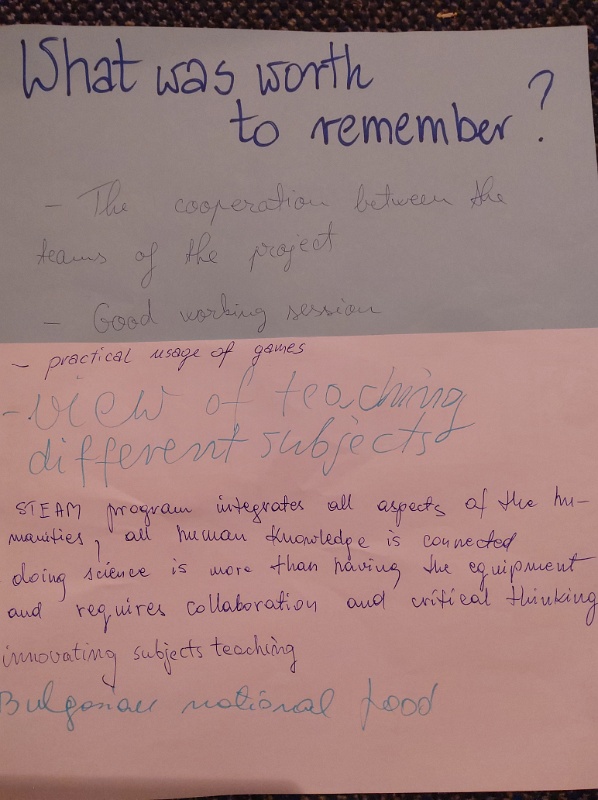 What was worth
to remember?
- The cooperation between the
teams of the project
- Good working session
- practical usage of games
- view of teaching
different subjects
STEAM program integrates all aspects of the hu-
manities, all human knowledge is connected
doing science is more than having the equipment
and requires collaboration and critical thinking
innovating subjects teaching
Bulgarian national food